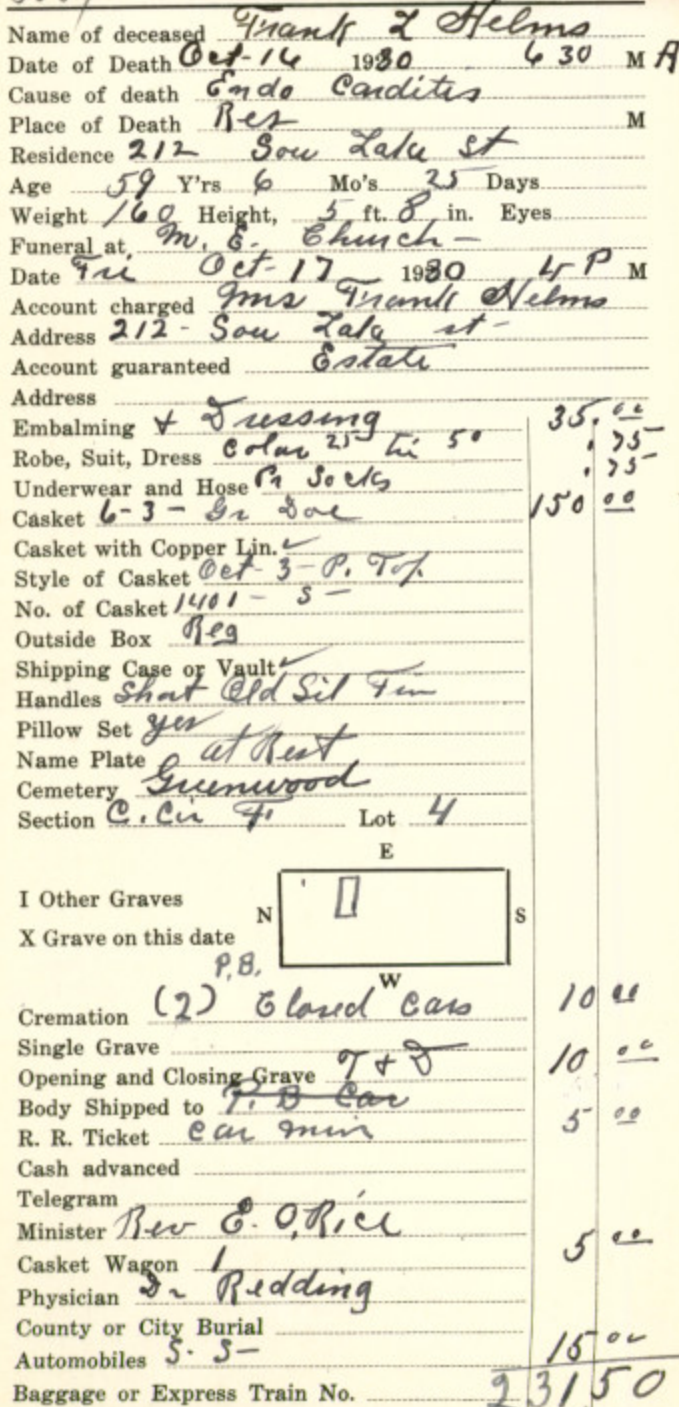 Name of deceased Frank L Helms
Date of Death Oct-16 1930 6 30 M A
Cause of death Endo Carditis
Place of Death Res M
Residence 212 Sou Lake St
Age 59 Y'rs 6 Mo's 25 Days
Weight 160 Height, 5 ft. 8 in. Eyes
Funeral at M. E. Church -
Date Fri Oct-17 1930 4 P M
Account charged Mrs Frank Helms
Address 212- Sou Lake st -
Account guaranteed Estate
Address
Embalming & Dressing 35.00
Robe, Suit, Dress Colar 25 tie 50 .75
Underwear and Hose Pr Socks .75
Casket 6-3- Gr Doe 150 00
Casket with Copper Lin. ✓
Style of Casket Oct 3-P. Top
No. of Casket 1401- S-
Outside Box Reg
Shipping Case or Vault ✓
Handles Short Old Sil Fin
Pillow Set yes
Name Plate at Rest
Cemetery Greenwood
Section C. Cir F. Lot 4
E
I Other Graves
N S
X Grave on this date
P.B.
W
Cremation (2) Closed Cars 10 00
Single Grave
Opening and Closing Grave T & D 10 00
Body Shipped to P. B Car
R. R. Ticket Car min 5 00
Cash advanced
Telegram
Minister Rev E. O. Rice
Casket Wagon 1 5 00
Physician Dr Redding
County or City Burial
Automobiles 5. 3- 15 00
Baggage or Express Train No. 231 50